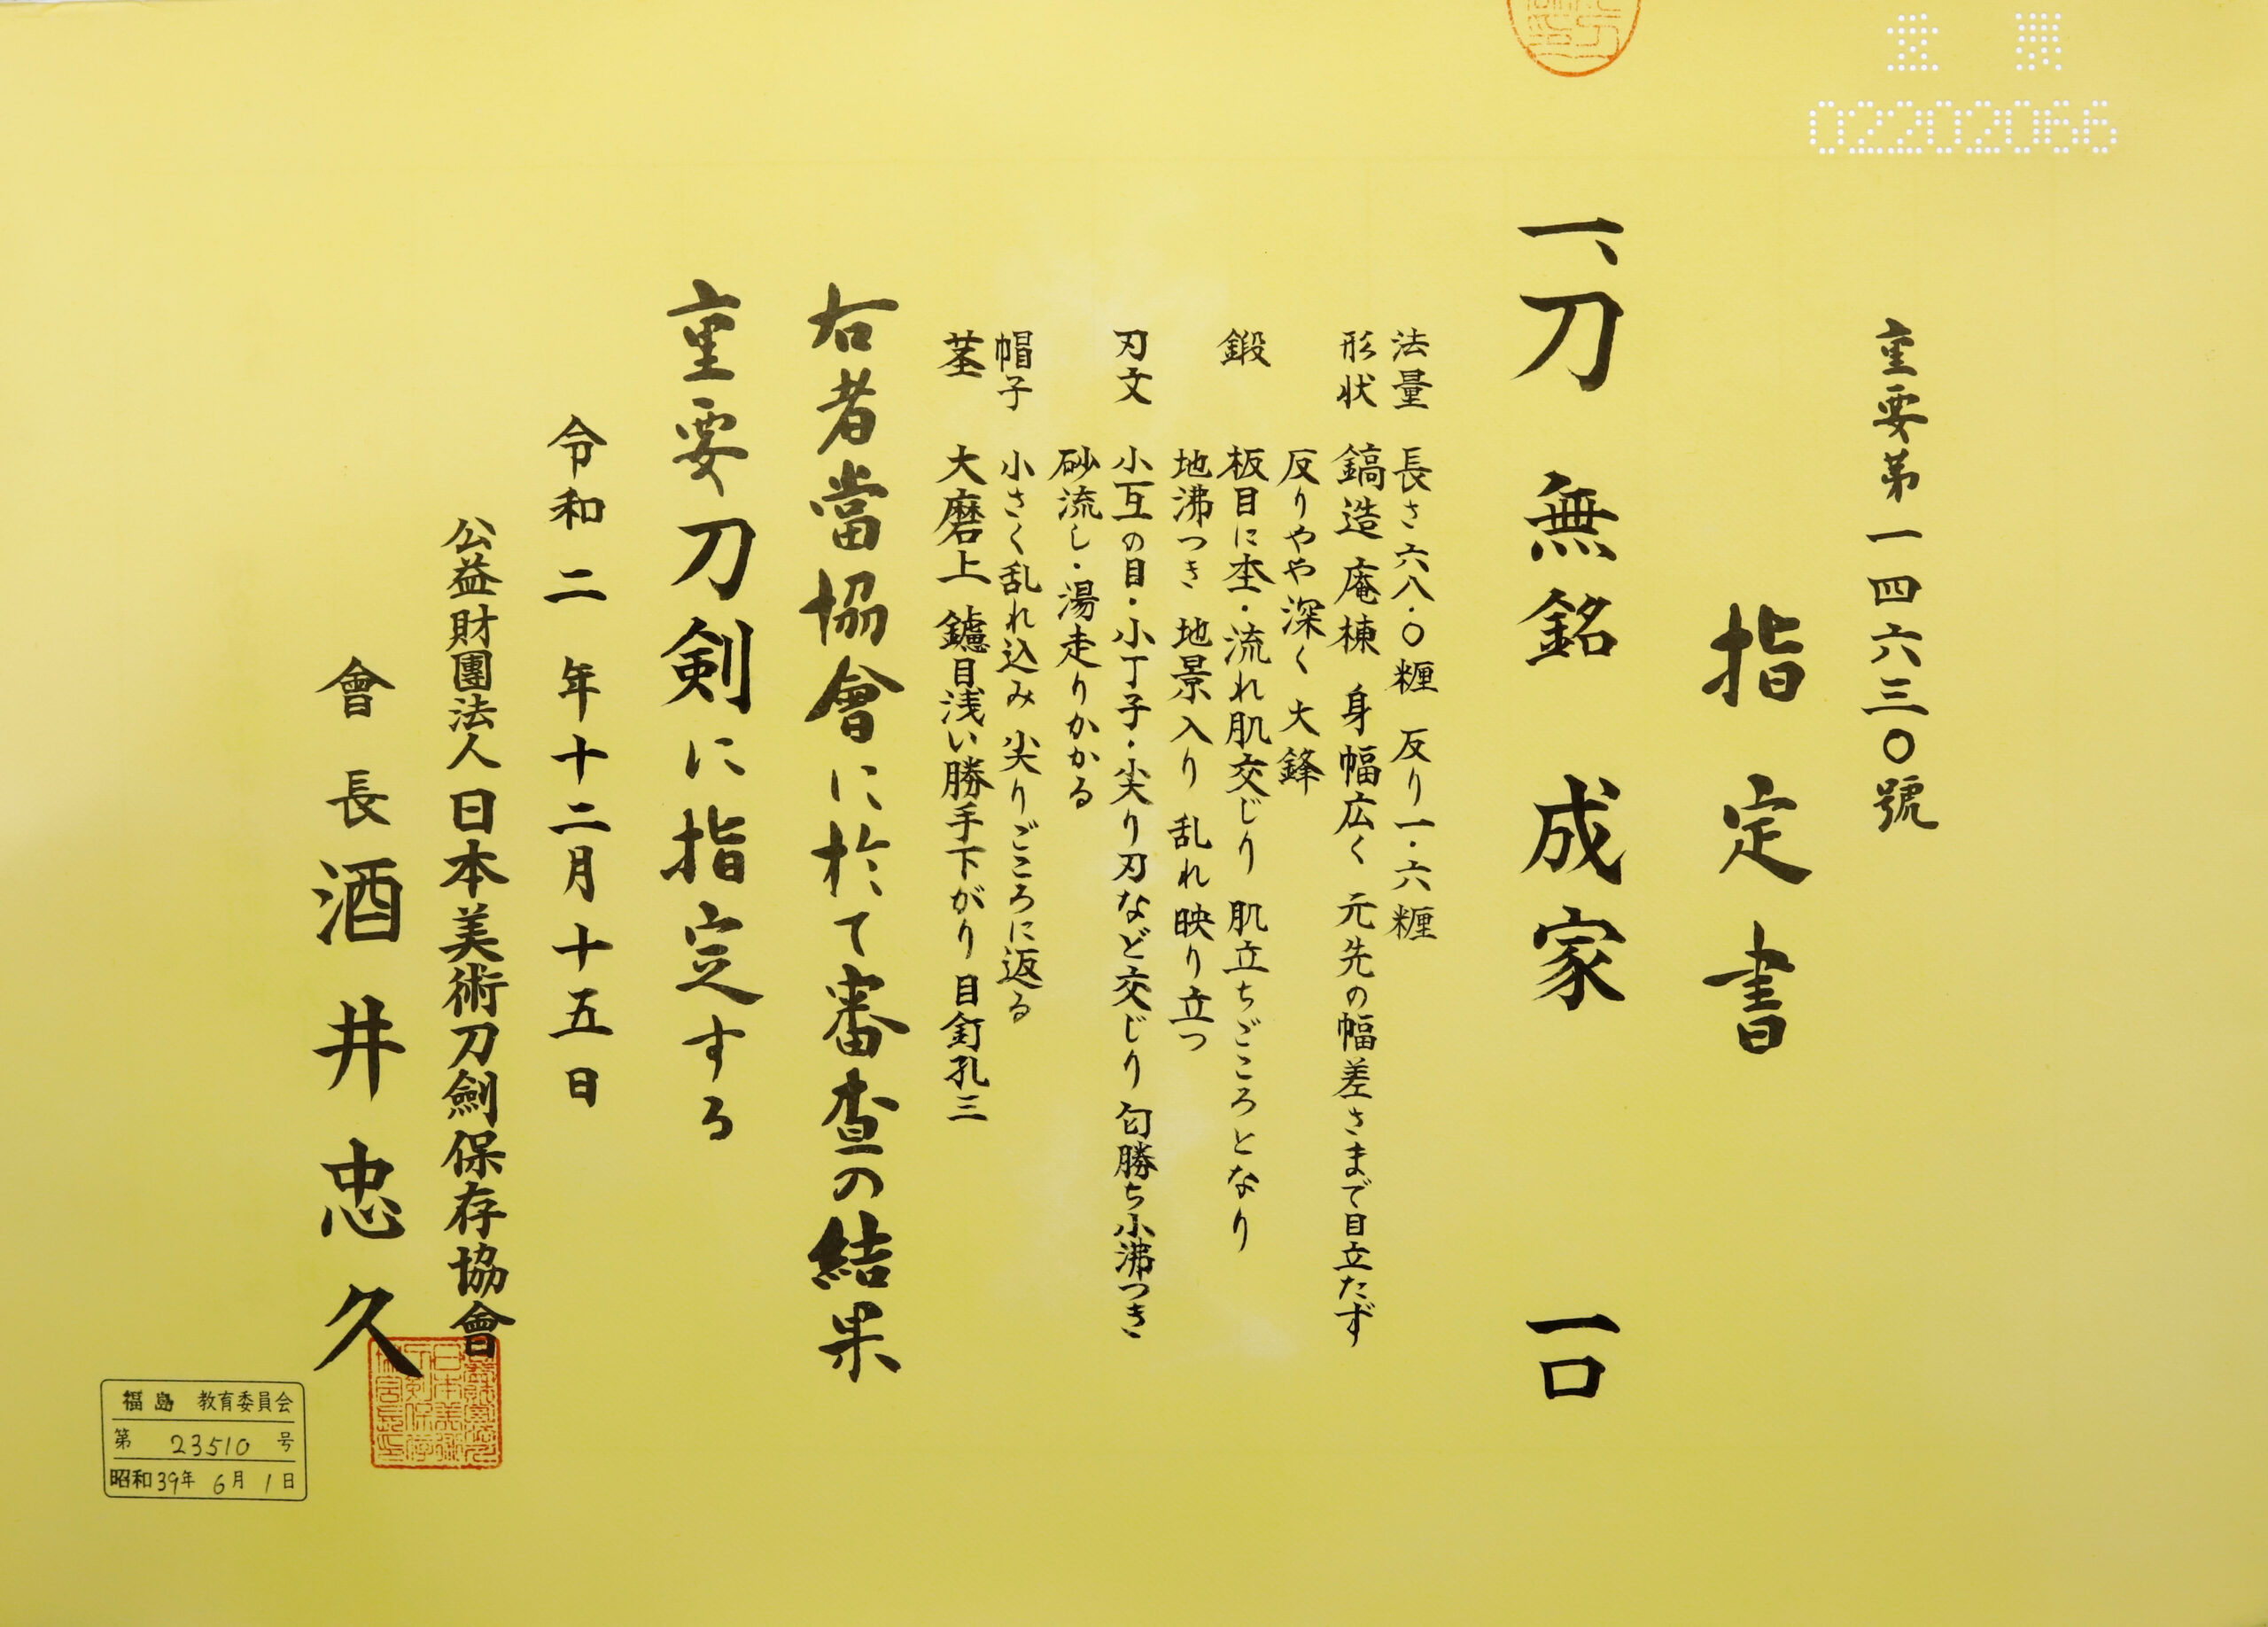 重要
02202066
重要第一四六三〇號
指定書
一、刀 無銘 成家 一口
法量 長さ六八・〇糎 反り一・六糎
形状 鎬造 庵棟 身幅広く 元先の幅差さまで目立たず
反りやや深く 大鋒
鍛 板目に杢・流れ肌交じり 肌立ちごころとなり
地沸つき 地景入り 乱れ映り立つ
刃文 小互の目・小丁子・尖り刃など交じり 匂勝ち小沸つき
砂流し・湯走りかかる
帽子 小さく乱れ込み 尖りごころに返る
茎 大磨上 鑢目浅い勝手下がり 目釘孔三
右者當協會に於て審査の結果
重要刀剣に指定する
令和二年十二月十五日
公益財團法人日本美術刀劍保存協會
會長 酒井忠久
福島 教育委員会
第 23510 号
昭和39年 6月 1日